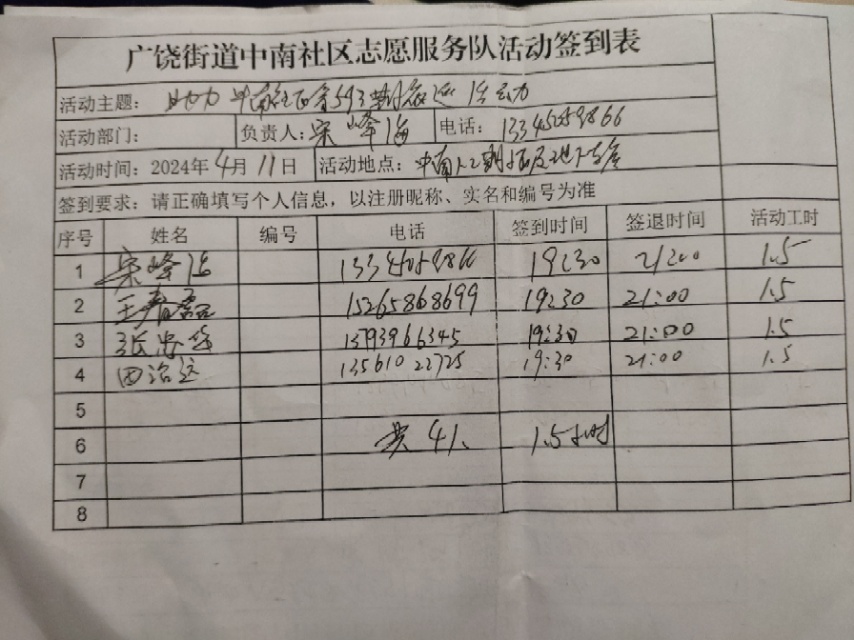 广饶街道中南社区志愿服务队活动签到表
活动主题: 助力中南社区
活动部门: 负责人: 宋峰海 电话:
活动时间: 2024年4月11日 活动地点: 中南
签到要求: 请正确填写个人信息，以注册昵称、实名和编号为准
序号 姓名 编号 电话 签到时间 签退时间 活动工时
1 宋峰海 19:30 21:00 1.5
2 王 15265868699 19:30 21:00 1.5
3 张忠华 13793966345 19:30 21:00 1.5
4 田治运 13561022725 19:30 21:00 1.5
5
6 共4人 1.5小时
7
8